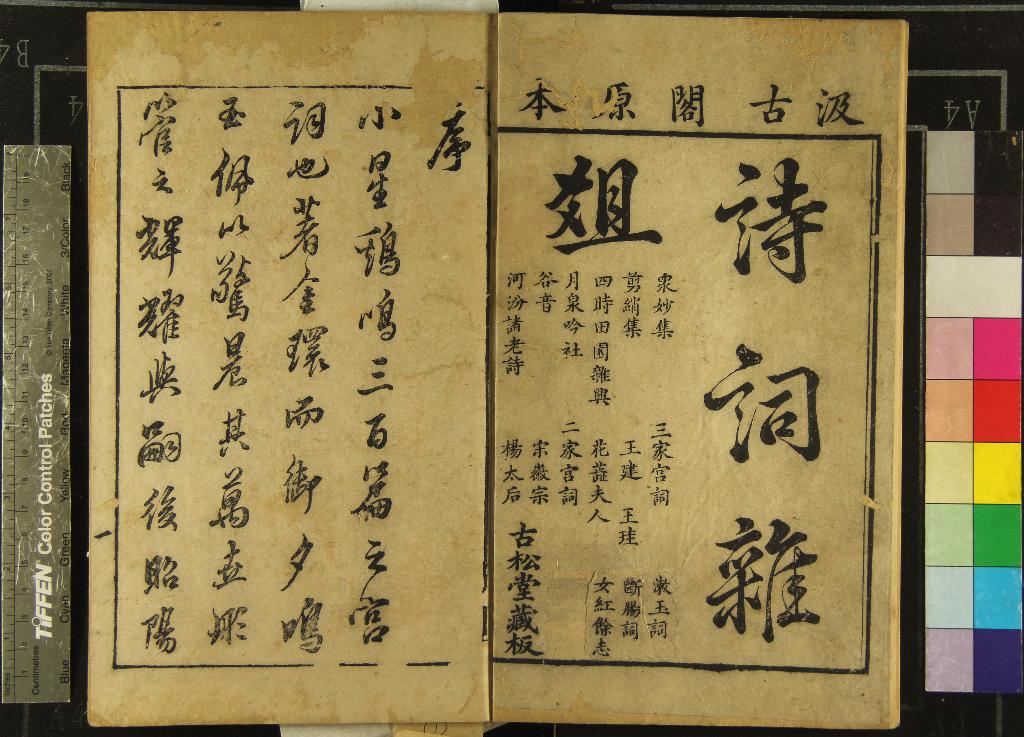 汲古閣原本
詩詞雜
爼
衆妙集 三家宮詞 漱玉詞
剪綃集 王建 王珪 斷腸詞
四時田園雜興 花蕋夫人 女紅餘志
月泉吟社 二家宮詞
谷音 宋徽宗
河汾諸老詩 楊太后
古松堂藏板
序
小星鷄鳴三百篇之宮
詞也著金環而御夕鳴
玉佩以驚晨其萬世彤
管之輝耀與嗣後昭陽
TIFFEN Color Control Patches
© The Tiffen Company, 2007
Inches
Centimetres
Blue Cyan Green Yellow Red Magenta White 3/Color Black
B4
A4